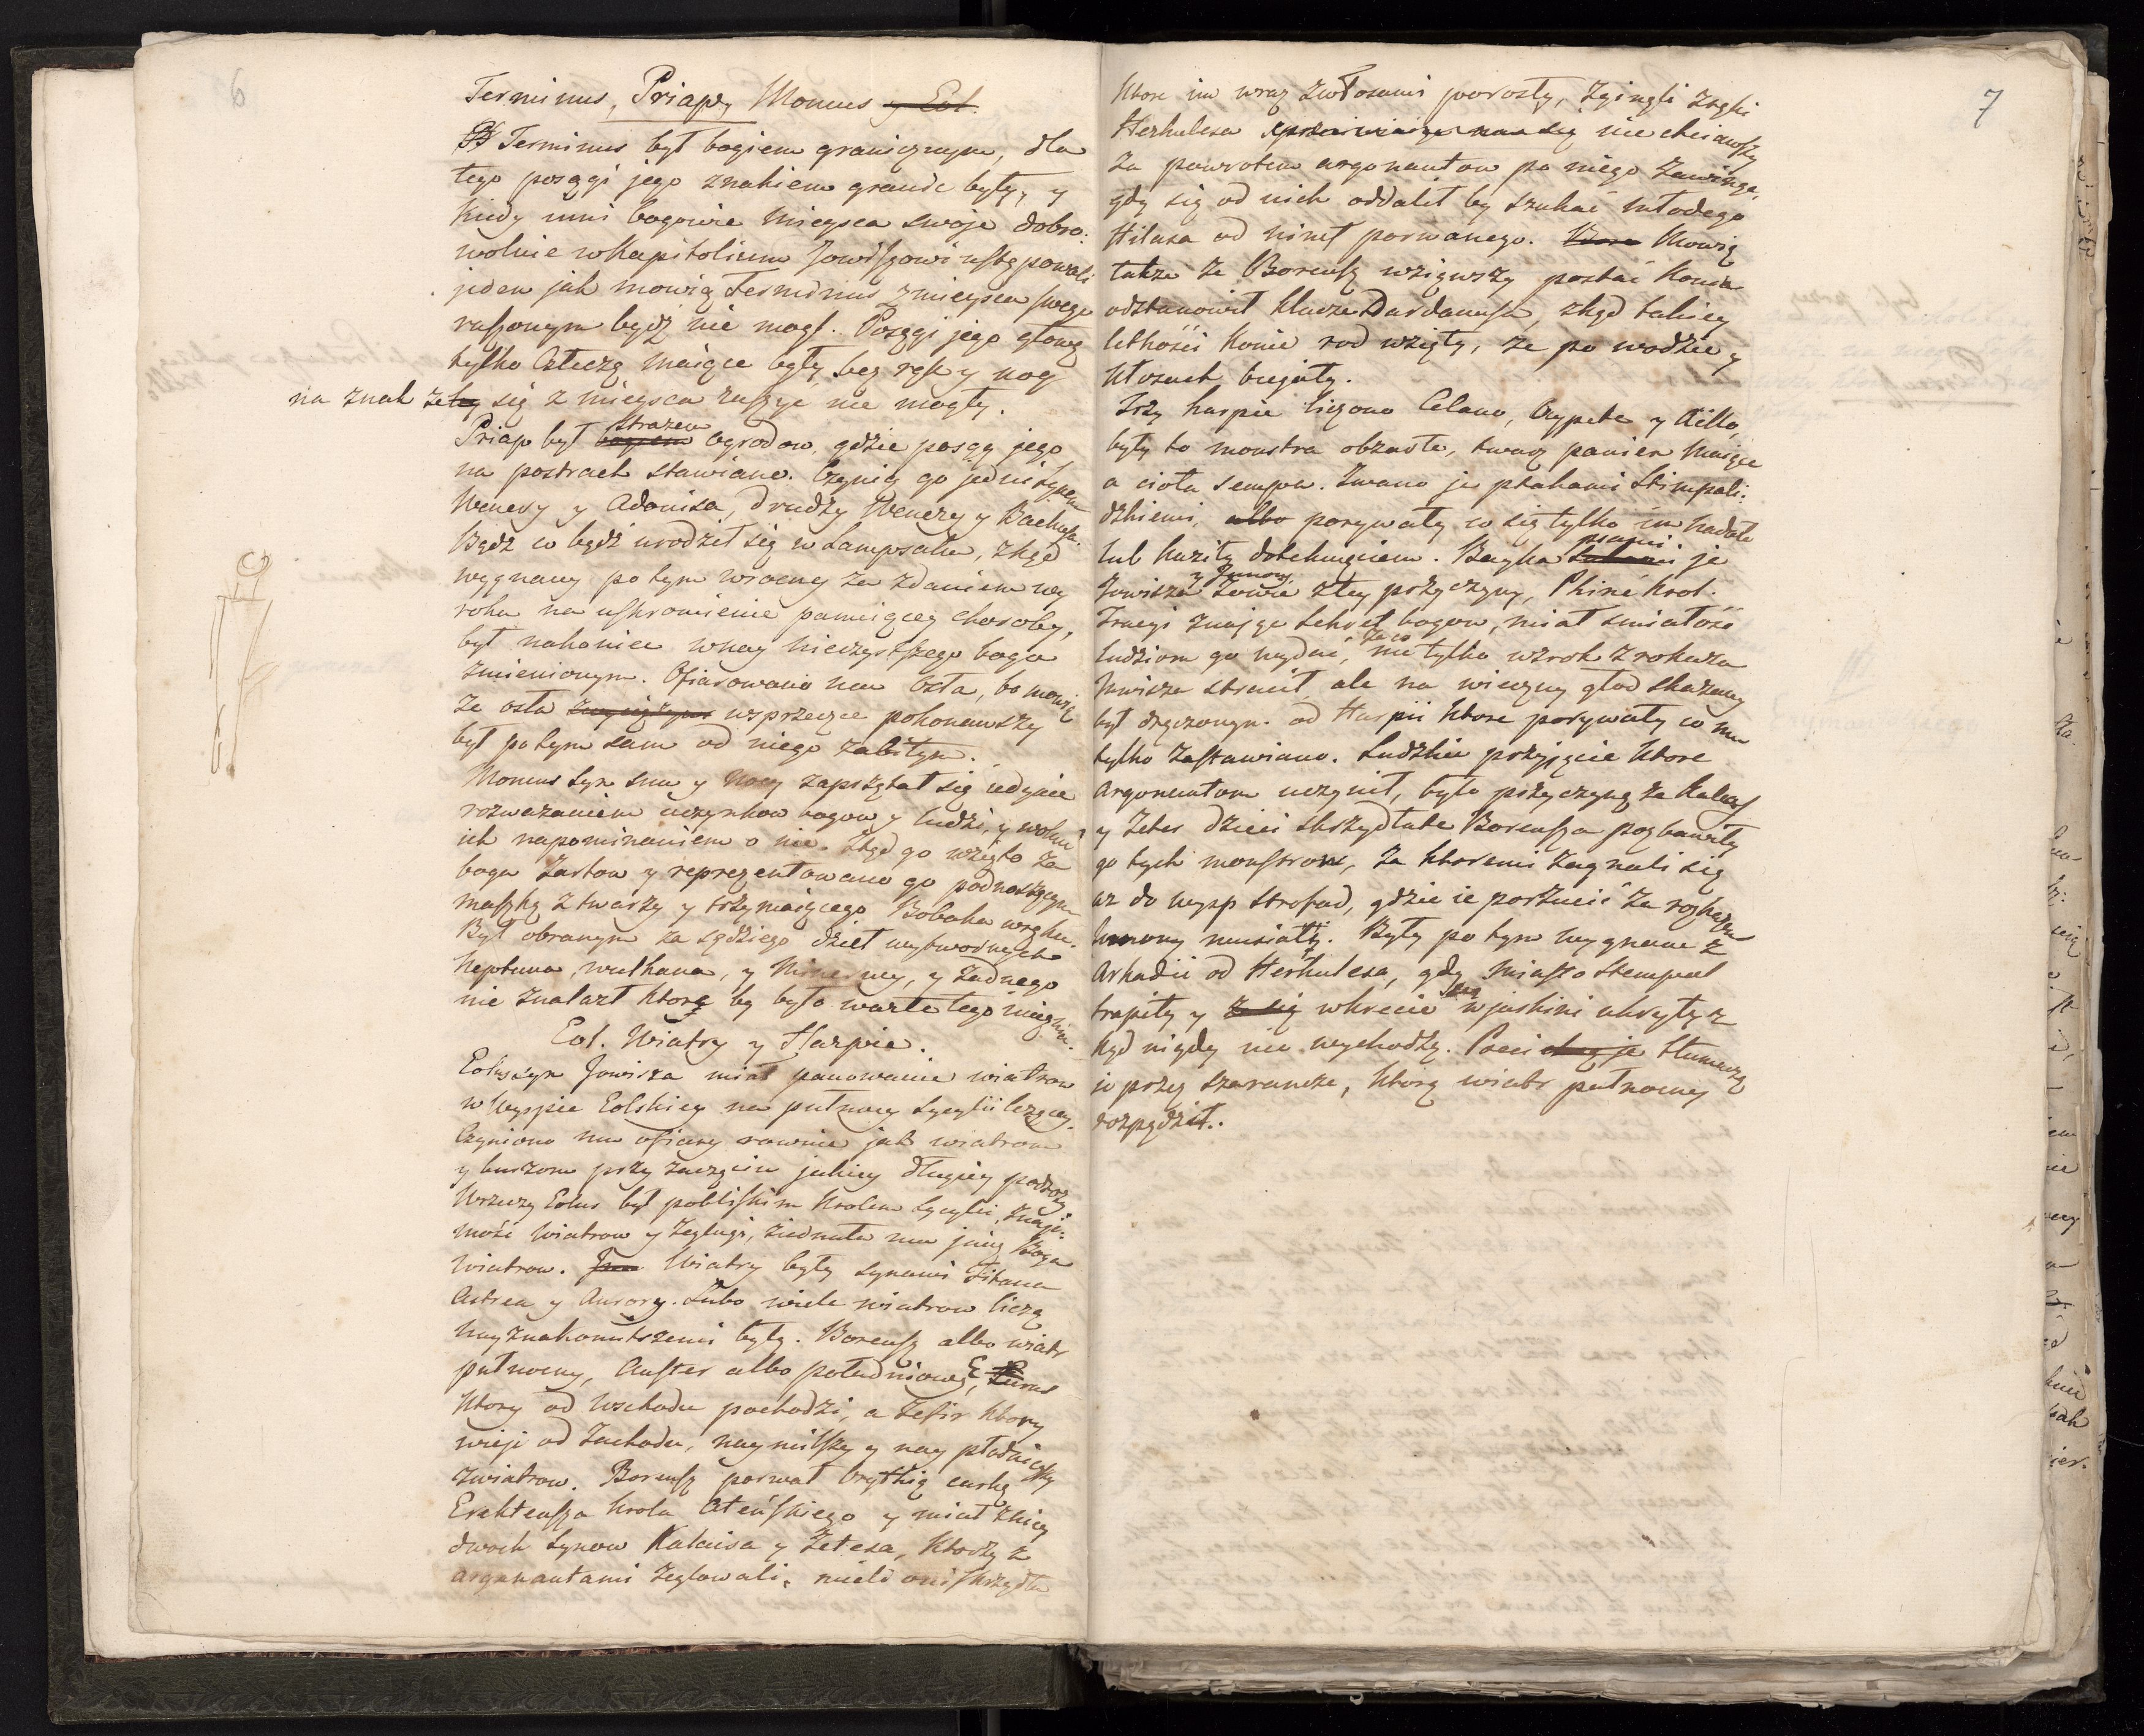 6
Terminus, Priap, Momus y Eol.
Terminus był bogiem granicznym, dla
tego posągi jego znakiem granic były, y
kiedy inni bogowie mieysca swoje dobro:
wolnie w Kapitolium Jowiszowi ustępowali
jeden jak mowią Terminus z mieysca swego
ruszonym bydz nie mogł. Posągi jego głowę
tylko człeczą maiące były, bez rąk y nog
na znak żeby się z mieysca ruszyc nie mogły.
Priap był bogiem strazem ogrodow, gdzie posągi jego
na postrach stawiano. Czynią go jedni synem
Wenery y Adonisa, drudzy Wenery y Bachusa.
Bądz co bądź urodził się w Lampsaku, zkąd
wygnany po tym wrocony za zdaniem wy
roku na uskromienie panuiącey choroby,
był nakoniec w nay nieczystszego boga
zmienionym. Ofiarowano mu osła, bo mowią
że osła zwyciężywszy w sprzeczce pokonawszy
był po tym sam od niego zabitym.
Momus syn snu y nocy zaprzątał się iedynie
rozważaniem uczynkow bogow y ludzi, y wolnie
ich napominaniem o nie. Zkąd go wzięto za
boga żartow y reprezentowano go podnoszącym
maszkę z twarzy y trzymaiącego Bobaka w ręku.
Był obranym za sędziego dzieł wytwornych
Neptuna, wulkana, y Minerwy, y żadnego
nie znalazł ktore by było warte tego imienia.
Eol. Wiatry y Harpie.
Eolus syn Jowisza miał panowanie wiatrow
w Wyspie Eolskiey na pułnocy Sycylii leżącey.
Czyniono mu ofiary rownie jak wiatrom
y burzom przy zaczęciu jakiey długiey podroży
Wrzeczy Eolus był pobliskim Krolem Sycylii, znajo:
mość wiatrow y żeglugi, ziednała mu jmię Boga
wiatrow. Wiatry były synami Titana
Astrea y Aurory. Lubo wiele wiatrow liczą
nayznakomitszemi były. Boreasz albo wiatr
pułnocny, Auster albo południowy, Eurus
ktory od wschodu pochodzi, a Zefir ktory
wieje od zachodu, naymilszy y nay płodnieyszy
z wiatrow. Boreasz porwał Orythię curkę
Erekteusza Krola Ateńskiego y miał z niey
dwoch synow Kalaisa y Zetesa, ktorzy z
argonautami żeglowali, mieli oni skrzydła
7
ktore im wraz z włosami porosły, zginęli z ręki
Herkulesa nie chciawszy
za powrotem argonautow po niego zawinąc,
gdy się od nich oddalił by szukać młodego
Hilasa od nimf porwanego. Mowią
także że Boreasz wziąwszy postać Konia
odstanowił klacze Dardanusa, zkąd takiey
letkości konie rod wzięły, że po wodzie y
kłosach biegały.
Trzy harpie liczono Celano, Ocypete y Aello,
były to monstra obżarte, twarz panien maiące
a ciała sempow. Zwano je ptakami Stimpali:
dskiemi, albo porywały co się tylko im nadało
lub kaziły dotchnięciem. Bayka psami je
Jowisza y Junony Zowie z tey przyczyny, Phiné krol
Tracyi znając sekret bogow, miał śmiałość
ludziom go wydać, za co nie tylko wzrok z rozkazu
Jowisza stracił, ale na wieczny głod skazany
był dręczonym od Harpii ktore porywały co mu
tylko zastawiano. Ludzkie przyjęcie ktore
Argonautom uczynił, było przyczyną że Kalais
y Zetes dzieci skrzydlate Boreusza pozbawiły
go tych monstrow, za ktoremi zagnali się
az do wysp Strofad, gdzie ie porzucić za rozkazem
Junony musiały. Były po tym wygnane z
Arkadii od Herkulesa, gdy miasto Stempal
trapiły y z się wkrecie w jaskini ukryły z
kąd nigdy nie wychodzą. Poeci je tłumaczą
je przez szarancze, ktorą wiatr pułnocny
rozpędził.